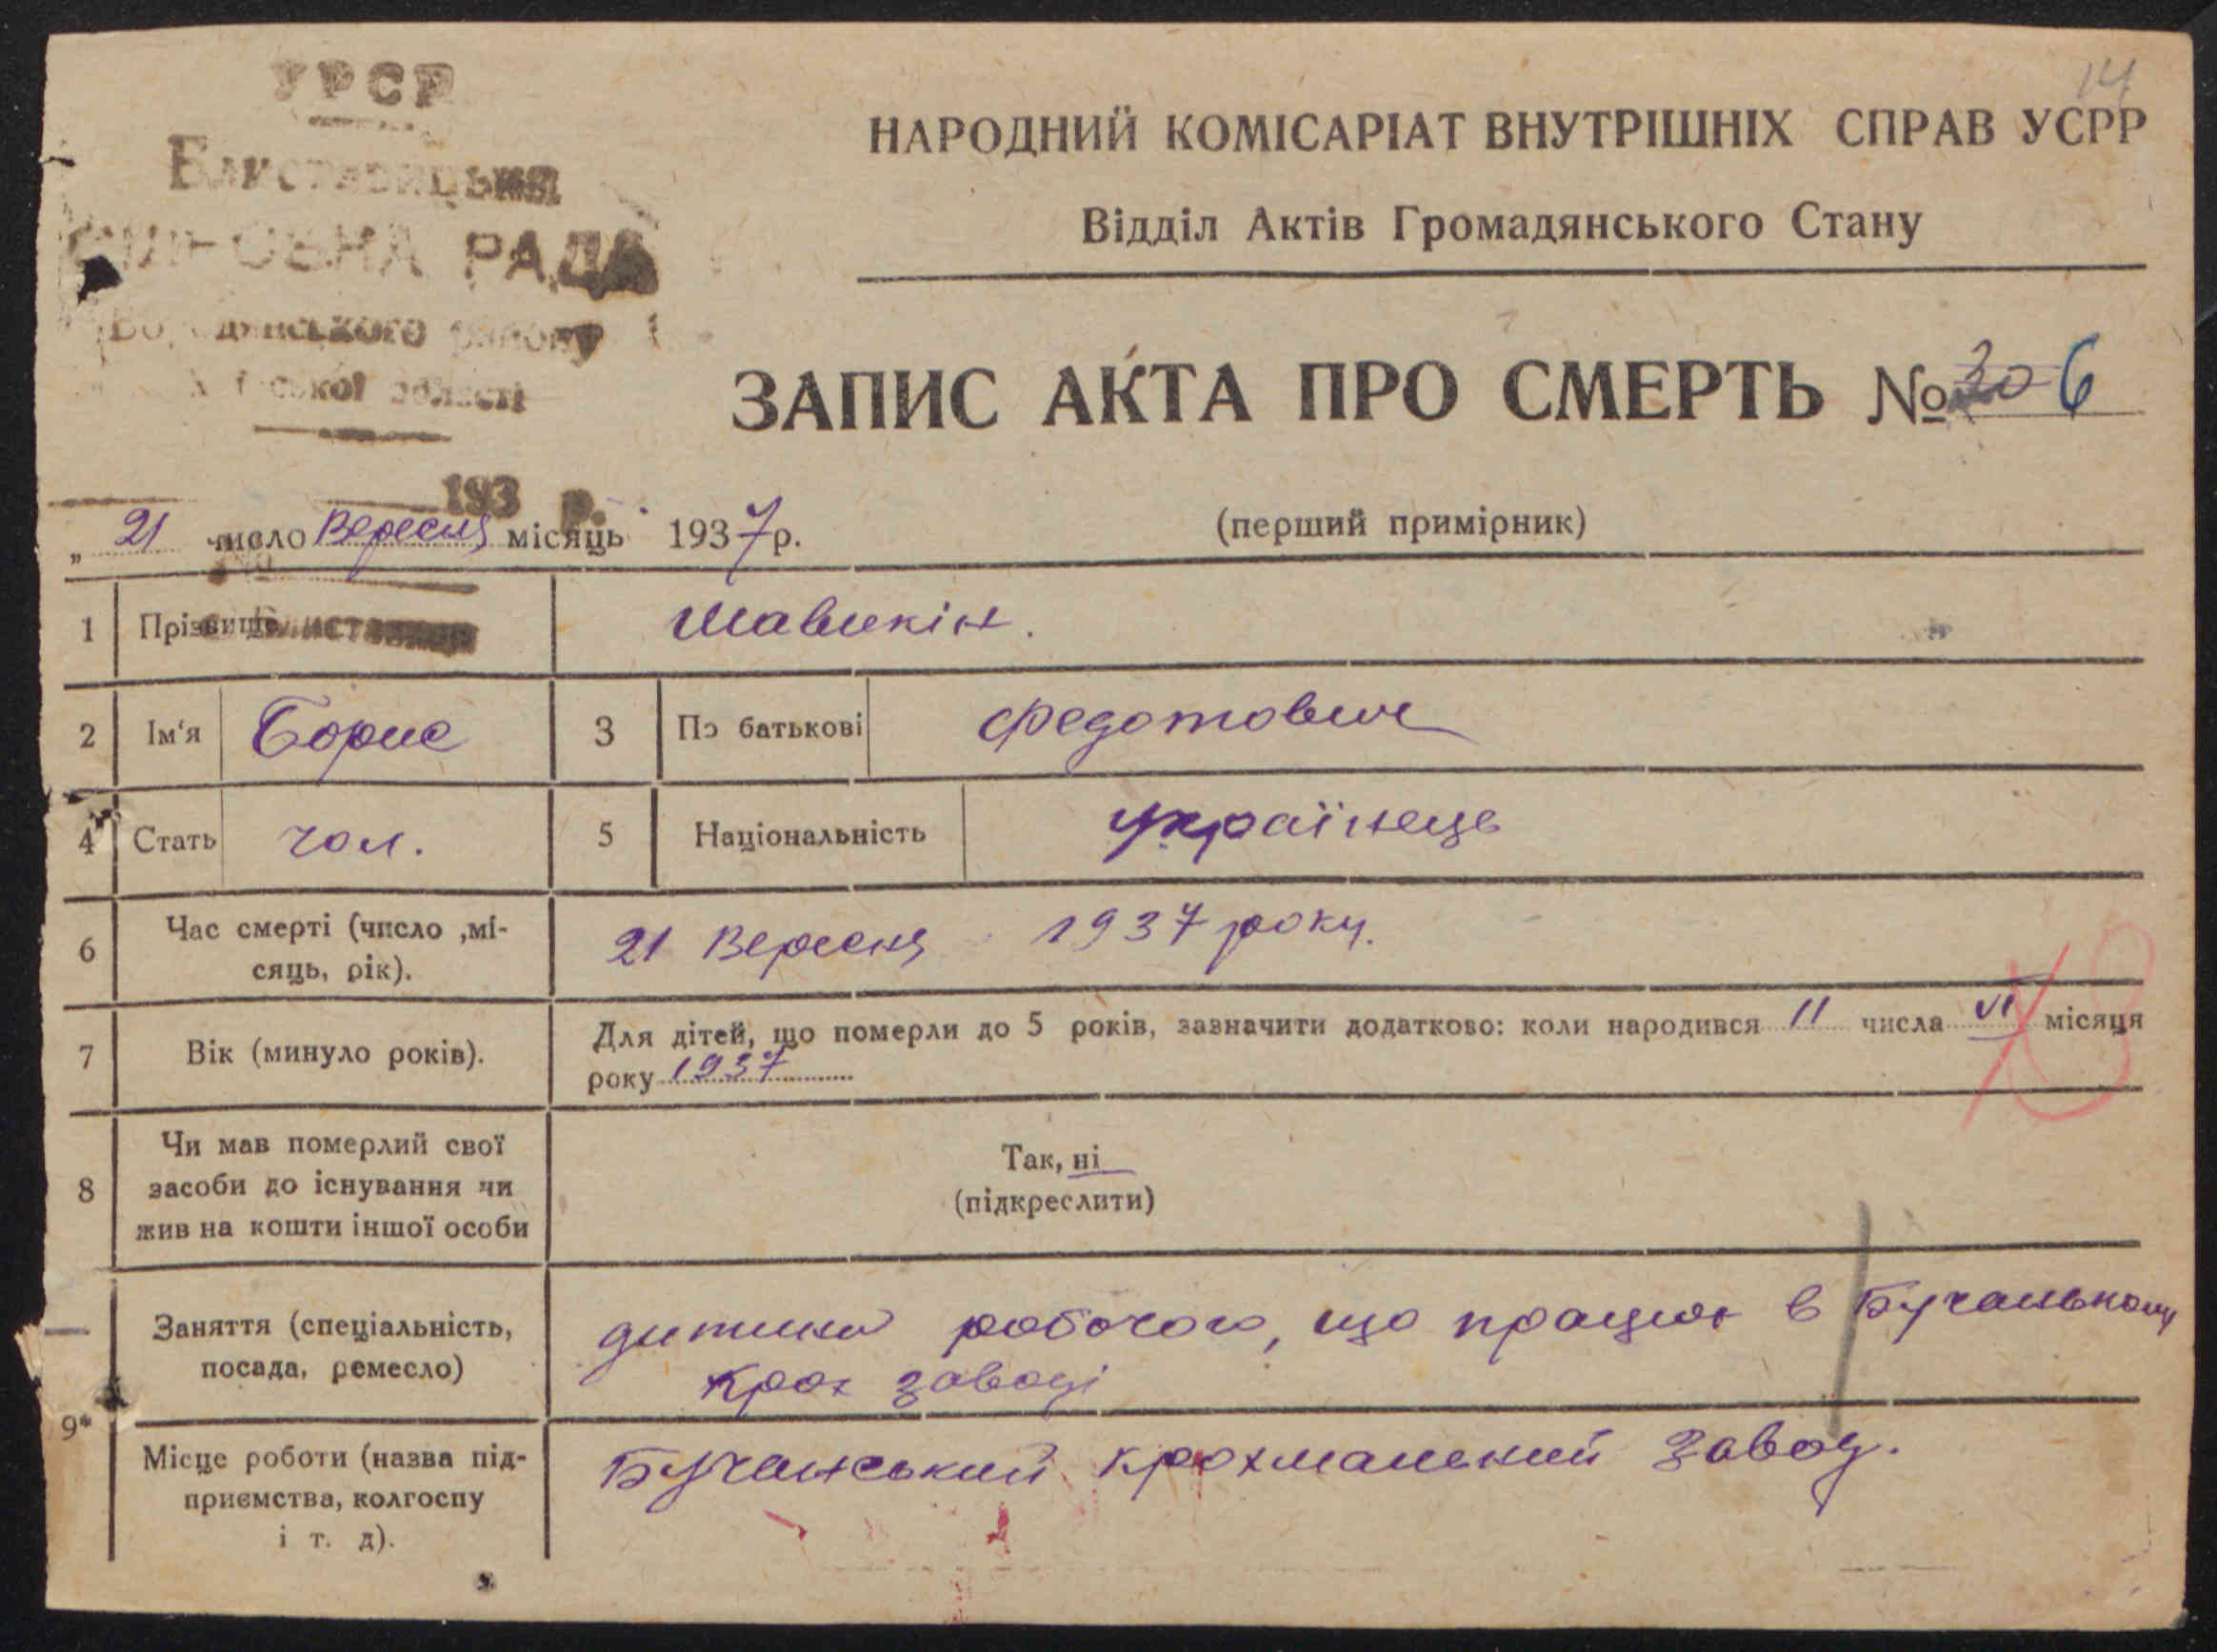 14
УРСР
Блиставицька
СІЛЬСЬКА РАДА
Бородянського району
Київської області
193 р.
НАРОДНИЙ КОМІСАРІАТ ВНУТРІШНІХ СПРАВ УСРР
Відділ Актів Громадянського Стану
ЗАПИС АКТА ПРО СМЕРТЬ № 30 6
(перший примірник)
„ 21 число Вересня місяць 1937 р.
1 Прізвище Шавикін.
2 Ім'я Борис 3 По батькові Федотович
4 Стать чол. 5 Національність українець
6 Час смерті (число ,мі-
сяць, рік). 21 Вересня 1937 року.
7 Вік (минуло років). Для дітей, що померли до 5 років, зазначити додатково: коли народився 11 числа VI місяця
року 1937
8 Чи мав померлий свої
засоби до існування чи
жив на кошти іншої особи
Так, ні
(підкреслити)
9* Заняття (спеціальність,
посада, ремесло)
дитина робочого, що працює в Бучанському
крох заводі
Місце роботи (назва під-
приємства, колгоспу
і т. д).
Бучанський крохмальний завод.